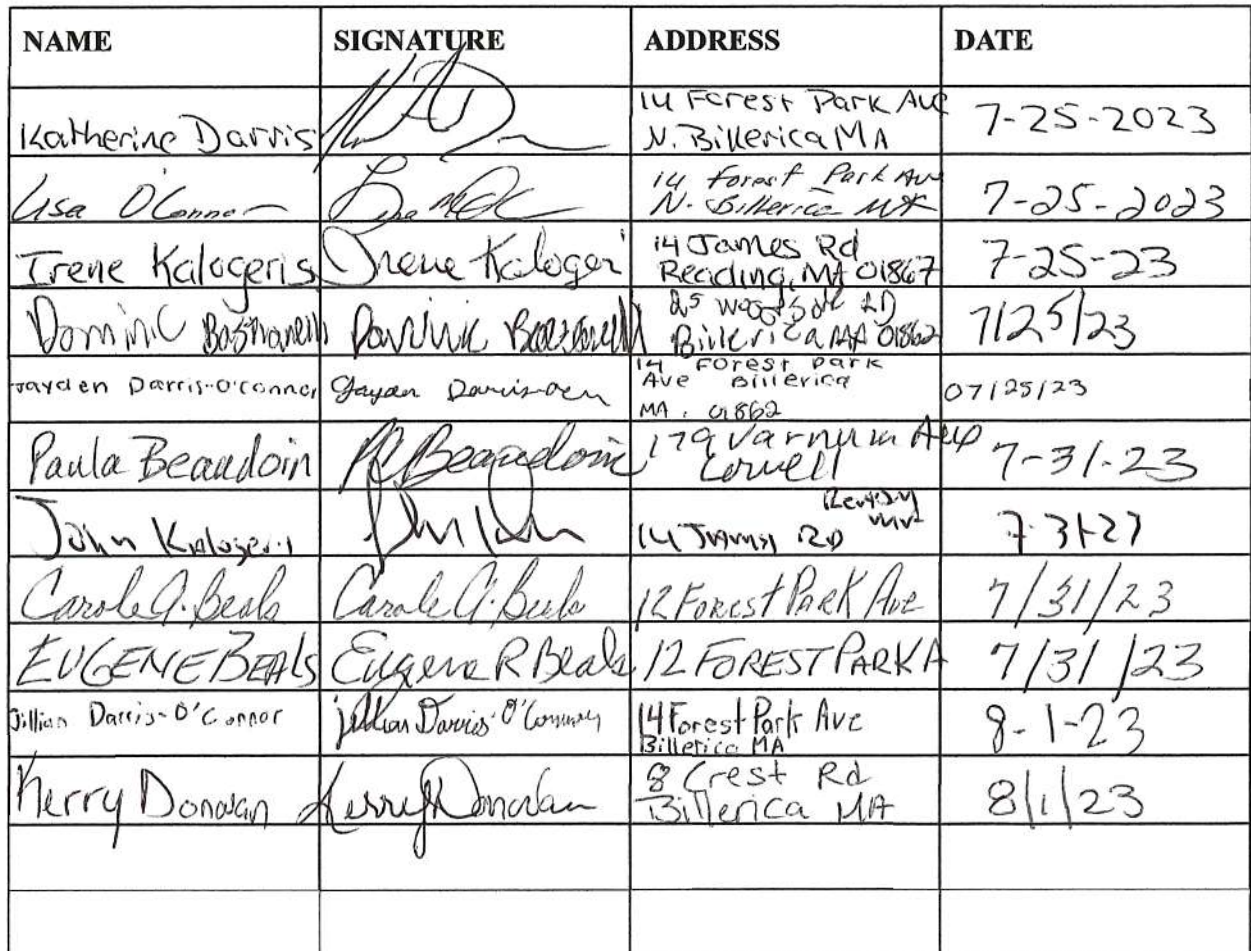 NAME SIGNATURE ADDRESS DATE
Katherine Darris 14 Forest Park Ave
N. Billerica MA 7-25-2023
Lisa O'Connor 14 Forest Park Ave
N. Billerica MA 7-25-2023
Irene Kalogeris Irene Kaloger 14 James Rd
Reading, MA 01867 7-25-23
Dominic Dominic 25 RD
Billerica MA 01862 7/25/23
Jayden Darris-O'Connor Jayden 14 Forest Park
Ave Billerica
MA. 01862 07/25/23
Paula Beaudoin P Beaudoin 179 Varnum Ave
Lowell 7-31-23
John Kalogeris 14 James RD 7-31-23
Carole A. Beals Carole A. Beals 12 Forest Park Ave 7/31/23
EUGENE BEALS Eugene R Beals 12 FOREST PARK A 7/31/23
Jillian Darris-O'Connor Jillian Darris-O'Connor 14 Forest Park Ave
Billerica MA 8-1-23
Kerry Donovan Kerry Donovan 8 Crest Rd
Billerica MA 8/1/23